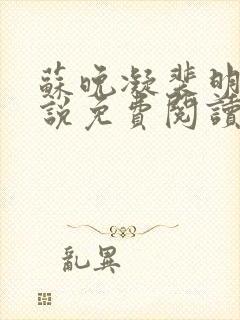 蘇晚凝裴明
說免費閱讀
亂異